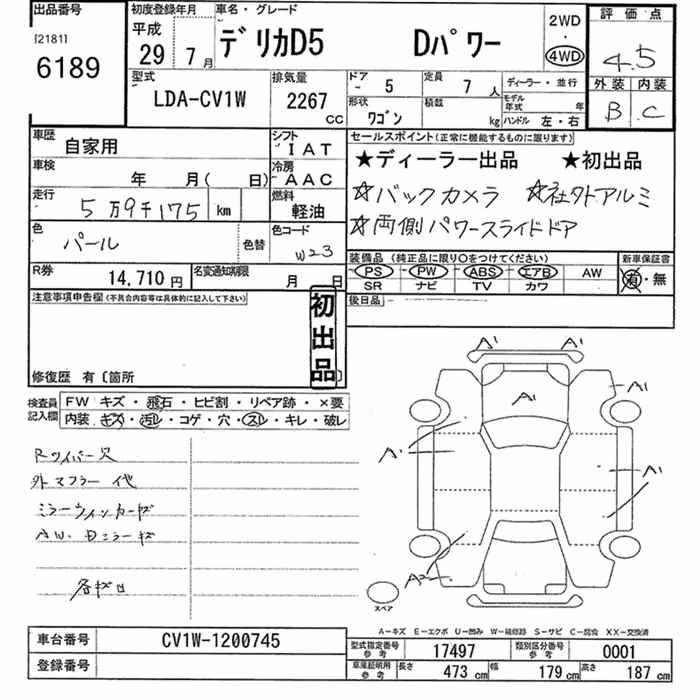 出品番号
[2181]
6189
初度登録年月
平成
29年 7月
車名・グレード
デリカD5 Dパワー
2WD
・
4WD
評価点
4.5
外装 内装
B C
型式
LDA-CV1W
排気量
2267
CC
ドア
- 5
定員
7人
ディーラー・並行
形状
ワゴン
積載
kg
モデル年式 年
ハンドル 左・右
車歴
自家用
シフト
IAT
車検
年 月( 日)
冷房
AAC
走行
5万9千175 km
燃料
軽油
色
パール
色替
色コード
W23
R券
14,710円
名変通知期限
月 日
セールスポイント(正常に機能するものに限ります)
★ディーラー出品 ★初出品
☆バックカメラ ☆社外アルミ
☆両側パワースライドドア
装備品(純正品に限り○をつけてください)
PS PW ABS エアB AW
SR ナビ TV カワ
新車保証書
有・無
後日品
注意事項申告欄(不具合内容等は具体的に記入して下さい)
初出品
修復歴 有〔箇所
検査員記入欄
FW キズ・飛石・ヒビ割・リペア跡・×要
内装 キズ・汚レ・コゲ・穴・スレ・キレ・破レ
Rワイパー欠
外マフラー 代
ミラーウィンカーキズ
AW、Dミラーキズ
各キズ凹
A' A'
A'
A'
A'
A'
A'
A2
スペア
A-キズ E-エクボ U-凹み W-補修跡 S-サビ C-腐食 XX-交換済
車台番号
CV1W-1200745
登録番号
型式指定番号 参考
17497
類別区分番号 参考
0001
車庫証明用 参考
長さ 473 cm
幅 179 cm
高さ 187 cm